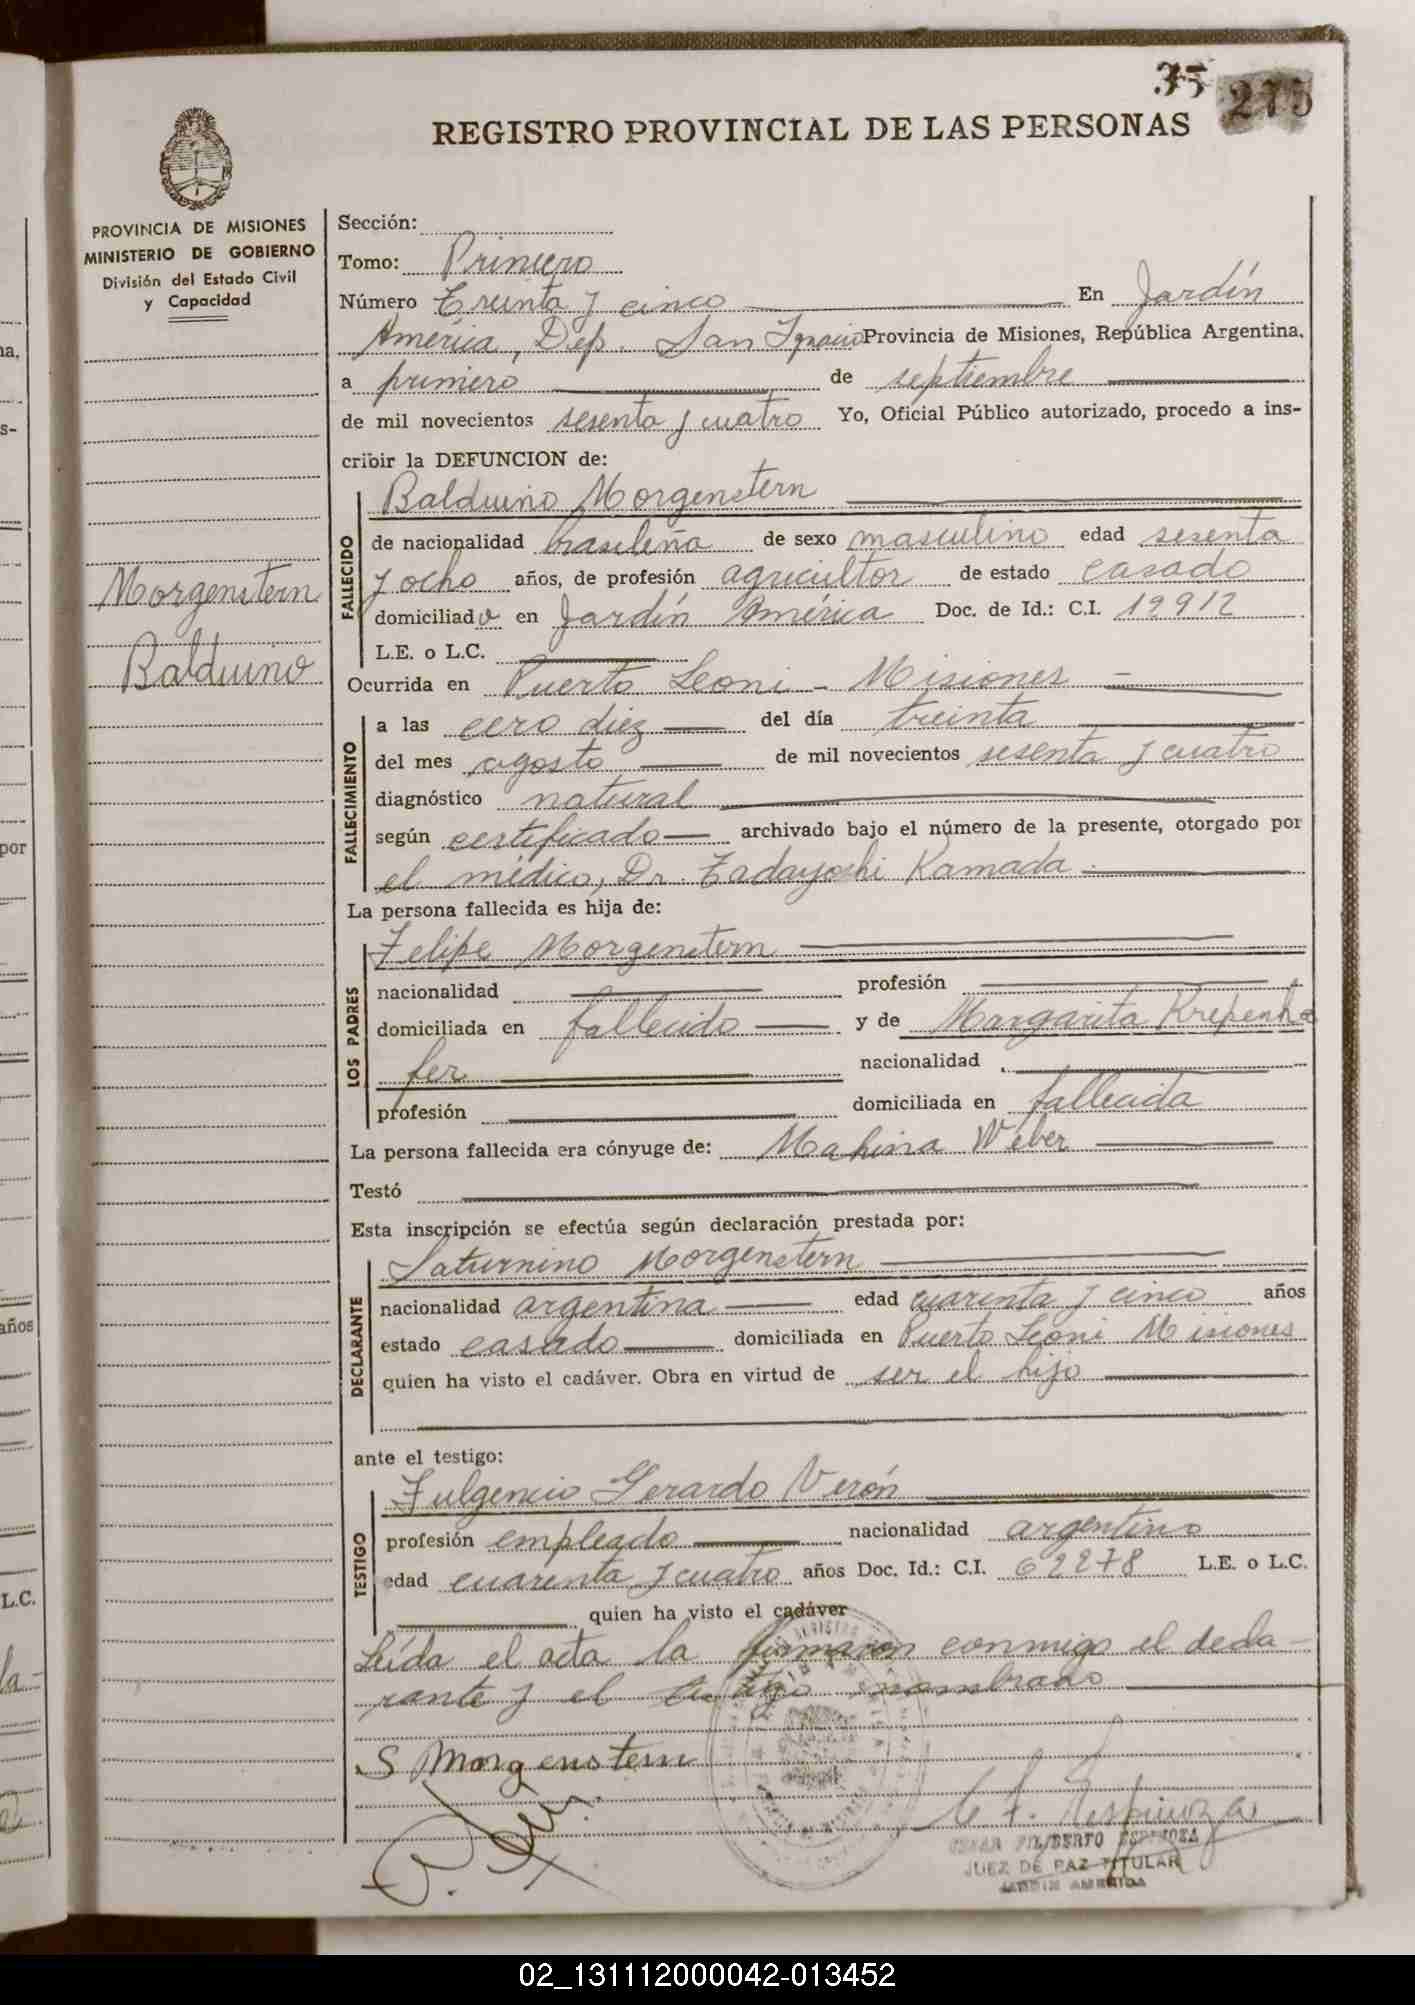 35 275
REGISTRO PROVINCIAL DE LAS PERSONAS
PROVINCIA DE MISIONES
MINISTERIO DE GOBIERNO
División del Estado Civil
y Capacidad
Morgenstern
Balduino
Sección:
Tomo: Primero
Número Treinta y cinco En Jardín
América, Dep. San Ignacio Provincia de Misiones, República Argentina,
a primero de septiembre
de mil novecientos sesenta y cuatro Yo, Oficial Público autorizado, procedo a ins-
cribir la DEFUNCION de:
FALLECIDO
Balduino Morgenstern
de nacionalidad brasileña de sexo masculino edad sesenta
y ocho años, de profesión agricultor de estado casado
domiciliado en Jardín América Doc. de Id.: C.I. 19912
L.E. o L.C.
Ocurrida en Puerto Leoni - Misiones
FALLECIMIENTO
a las cero diez del día treinta
del mes agosto de mil novecientos sesenta y cuatro
diagnóstico natural
según certificado archivado bajo el número de la presente, otorgado por
el médico, Dr. Tadayoshi Kamada
La persona fallecida es hija de:
LOS PADRES
Felipe Morgenstern
nacionalidad profesión
domiciliada en fallecido y de Margarita Krepenho
fer nacionalidad
profesión domiciliada en fallecida
La persona fallecida era cónyuge de: Weber
Testó
Esta inscripción se efectúa según declaración prestada por:
DECLARANTE
Saturnino Morgenstern
nacionalidad argentina edad cuarenta y cinco años
estado casado domiciliada en Puerto Leoni Misiones
quien ha visto el cadáver. Obra en virtud de ser el hijo
ante el testigo:
TESTIGO
Fulgencio Gerardo Verón
profesión empleado nacionalidad argentino
edad cuarenta y cuatro años Doc. Id.: C.I. 62278 L.E. o L.C.
quien ha visto el cadáver
Leída el acta la firmaron conmigo el decla-
rante y el testigo nombrado
S Morgenstern
C F. Espinoza
CESAR FILIBERTO ESPINOZA
JUEZ DE PAZ TITULAR
JARDIN AMERICA
02_131112000042-013452